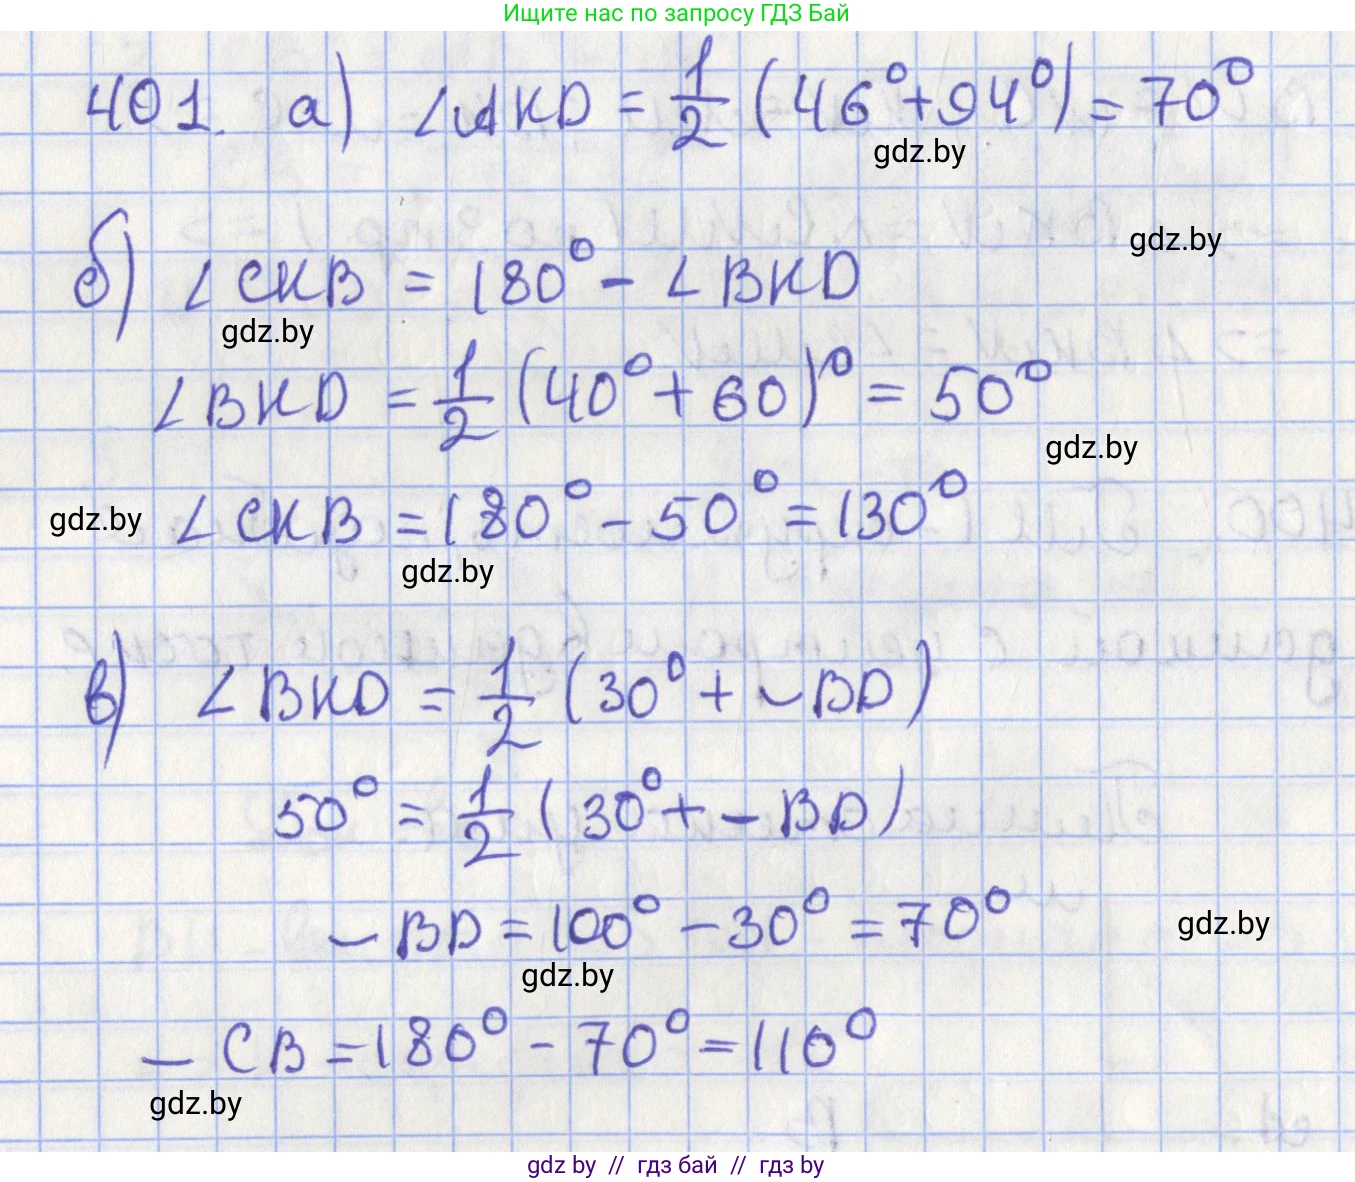 Ищите нас по запросу ГДЗ Бай
401. а) ∠AKD = 1/2 (46° + 94°) = 70°
gdz.by
gdz.by
б) ∠CKB = 180° - ∠BKD
gdz.by
∠BKD = 1/2 (40° + 60)° = 50°
gdz.by
gdz.by ∠CKB = 180° - 50° = 130°
gdz.by
в) ∠BKD = 1/2 (30° + ⌣BD)
50° = 1/2 (30° + ⌣BD)
⌣BD = 100° - 30° = 70°
gdz.by
gdz.by
⌣CB = 180° - 70° = 110°
gdz.by
gdz by // гдз бай // гдз by